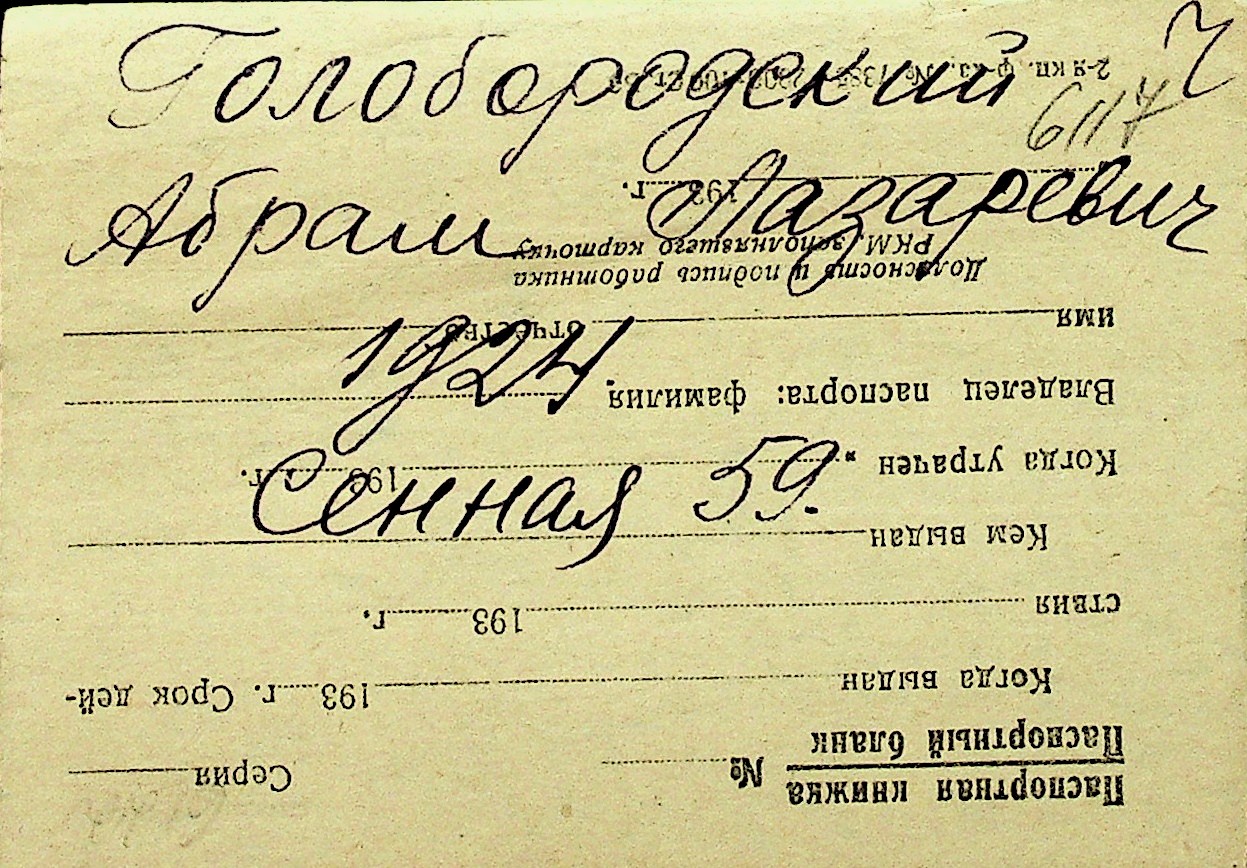 Голобородский Ч
6117
Абрам Лазаревич
1924.
Сенная 59.
Паспортная книжка № Серия
Паспортный бланк
Когда выдан 193 г. Срок дей-
ствия 193 г.
Кем выдан
Когда утрачен „ 193 г.
Владелец паспорта: фамилия
имя отчество
Должность и подпись работника
РКМ, заполнявшего карточку
193 г.
2-я кп. ф-ка.